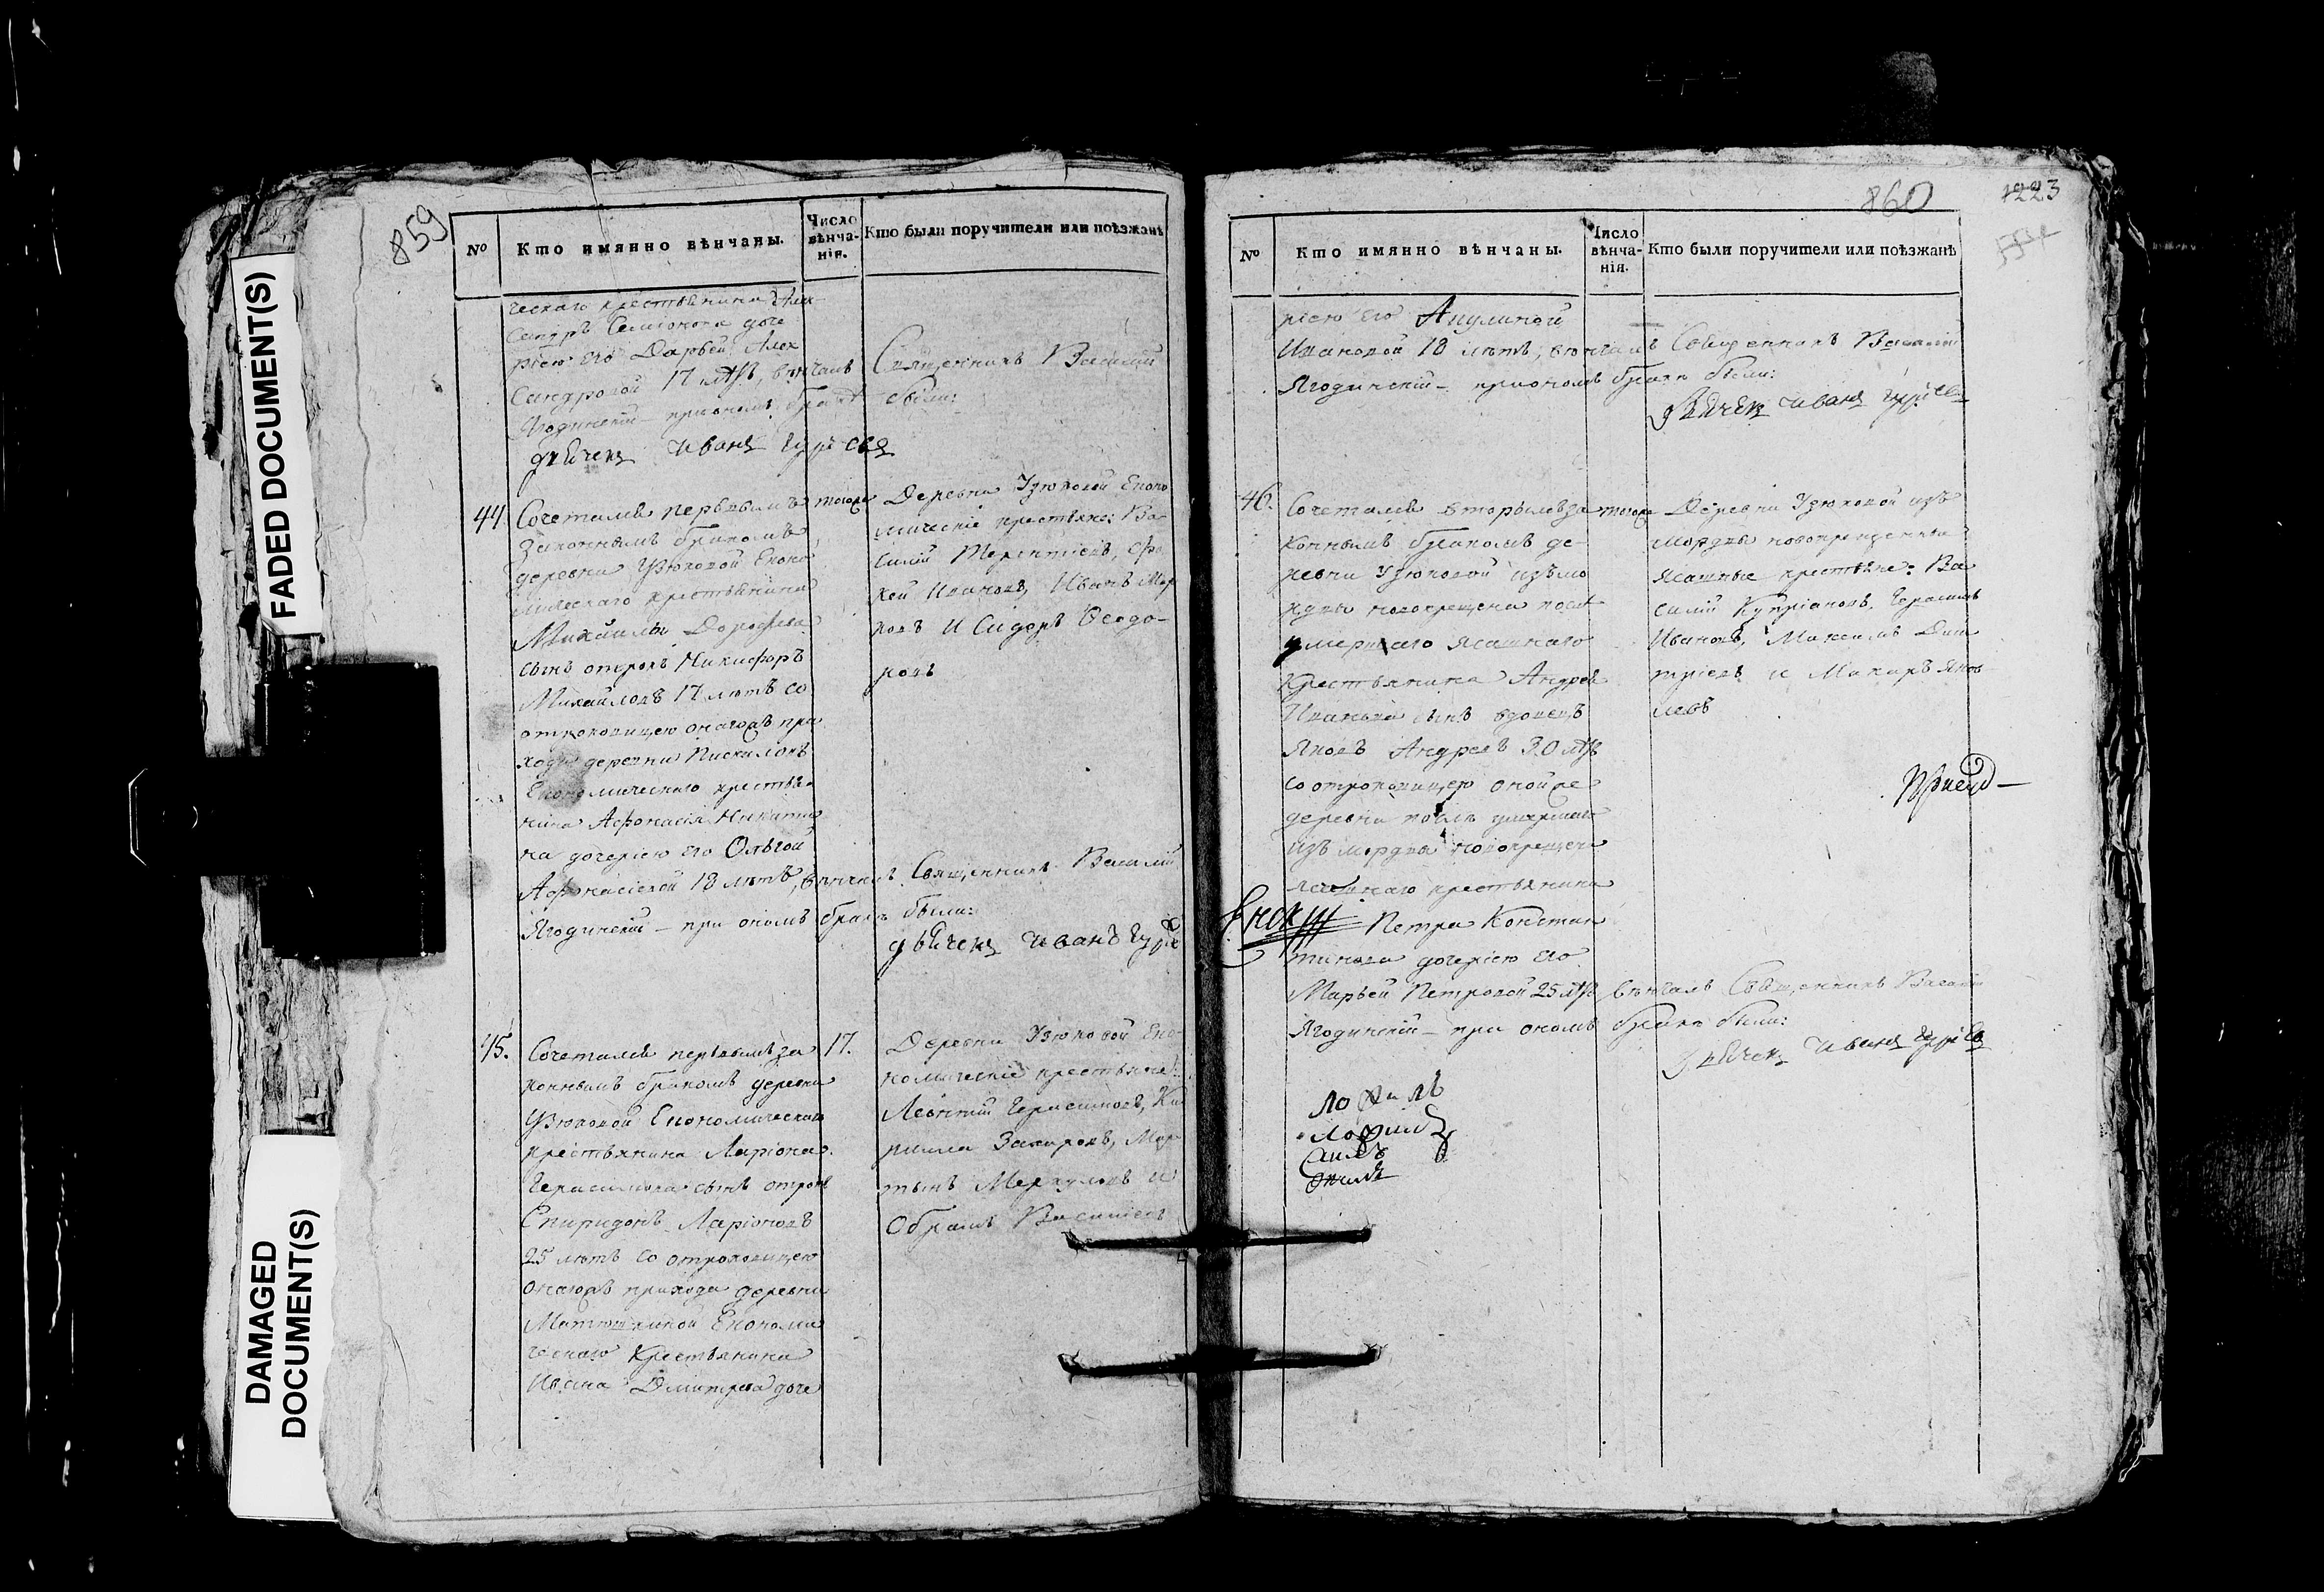 FADED DOCUMENT(S)
DAMAGED
DOCUMENT(S)
859
№
Кто имянно вѣнчаны.
Число
вѣнча-
нія.
Кто были поручители или поѣзжанѣ
ческаго крестьянина Алек
сандръ Семіонова доче
рію его Дарьей Алек
сандровой 17 лѣтъ, вѣнчалъ Священникъ Василій
Ягодинскій — при ономъ бракѣ были:
дьячекъ Иванъ Гурьевъ
44.
Сочетался первымъ
законнымъ бракомъ
деревни Узюковой Еконо
мическаго крестьянина
Михайлы Дорофеева
сынъ отрокъ Никифоръ
Михайловъ 17 лѣтъ со
отроковицею онагожъ при
хода деревни Пискалокъ
Економическаго крестья
нина Афонасія Никити
на дочерію его Ольгой
Афонасіевой 18 лѣтъ, вѣнчалъ Священникъ Василій
Ягодинскій — при ономъ бракѣ были:
дьячекъ Иванъ Гурье
тогоже
Деревни Узюковой Еконо
мическіе крестьяне: Ва
силій Терентіевъ, Фо
кей Ивановъ, Иванъ Мар
ковъ и Сидоръ Ѳеодо-
ровъ
45.
Сочетался первымъ за
коннымъ бракомъ деревни
Узюковой Економическаго
крестьянина Ларіона
Герасимова сынъ отрокъ
Спиридонъ Ларіоновъ
25 лѣтъ со отроковицею
онагожъ прихода деревни
Матюшкиной Економи
ческаго крестьянина
Ивана Дмитрева доче
17.
Деревни Узюковой Еко-
номическіе крестьяне:
Леонтій Герасимовъ, Ки
рилла Захаровъ, Мар
тынъ Меркуловъ и
Обрамъ Василіевъ
860
1223
№
Кто имянно вѣнчаны.
Число
вѣнча-
нія.
Кто были поручители или поѣзжанѣ
рією его Акулиной
Ивановой 18 лѣтъ, вѣнчалъ Священникъ Василій
Ягодинскій — при ономъ бракѣ были:
дьячекъ Иванъ Гурьевъ
46.
Сочетался вторымъ за
коннымъ бракомъ де-
ревни Узюковой изъ мо
рдвы новокрещена послѣ
умершаго ясашнаго
крестьянина Андрея
Иванова сынъ вдовецъ
Яковъ Андреевъ 30 лѣтъ
со отроковицею оной же
деревни послѣ умершаго
изъ мордвы новокрещена
ясашнаго крестьянина
Петра Констан
тинова дочерію его
Марьей Петровой 25 лѣтъ вѣнчалъ Священникъ Василій
Ягодинскій — при ономъ бракѣ были:
дьячекъ Иванъ Гурьевъ
тогоже
Деревни Узюковой изъ
мордвы новокрещенныи
ясашные крестьяне: Ва
силій Купріановъ, Герасимъ
Ивановъ, Максимъ Дми
тріевъ и Макаръ Яков
левъ